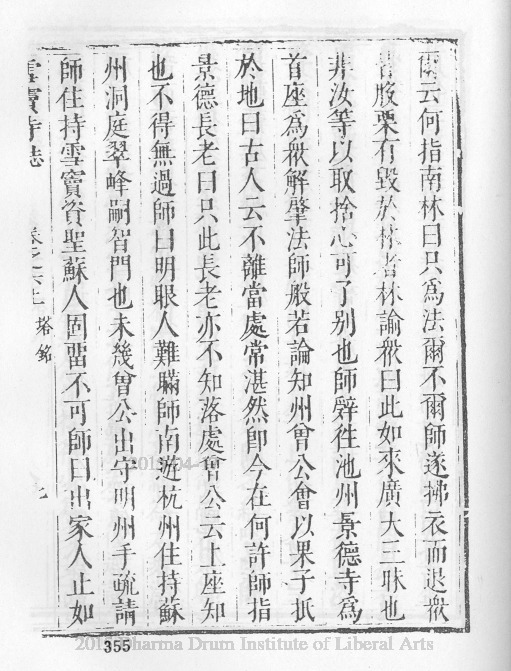 爾云何指南林曰只爲法爾不爾師遂拂衣而退衆
皆股栗有毀於林者林諭衆曰此如來廣大三昧也
非汝等以取捨心可了别也師辭徃池州景德寺爲
首座爲衆解肇法師般若論知州曾公會以果子抵
於地曰古人云不離當處常湛然即今在何許師指
景德長老曰只此長老亦不知落處曾公云上座知
也不得無過師曰明眼人難瞞師南遊杭州住持蘇
州洞庭翠峰嗣智門也未幾曾公出守明州手疏請
師住持雪竇資聖蘇人固畱不可師曰出家人止如
雪竇寺誌
塔銘
七
355
Dharma Drum Institute of Liberal Arts